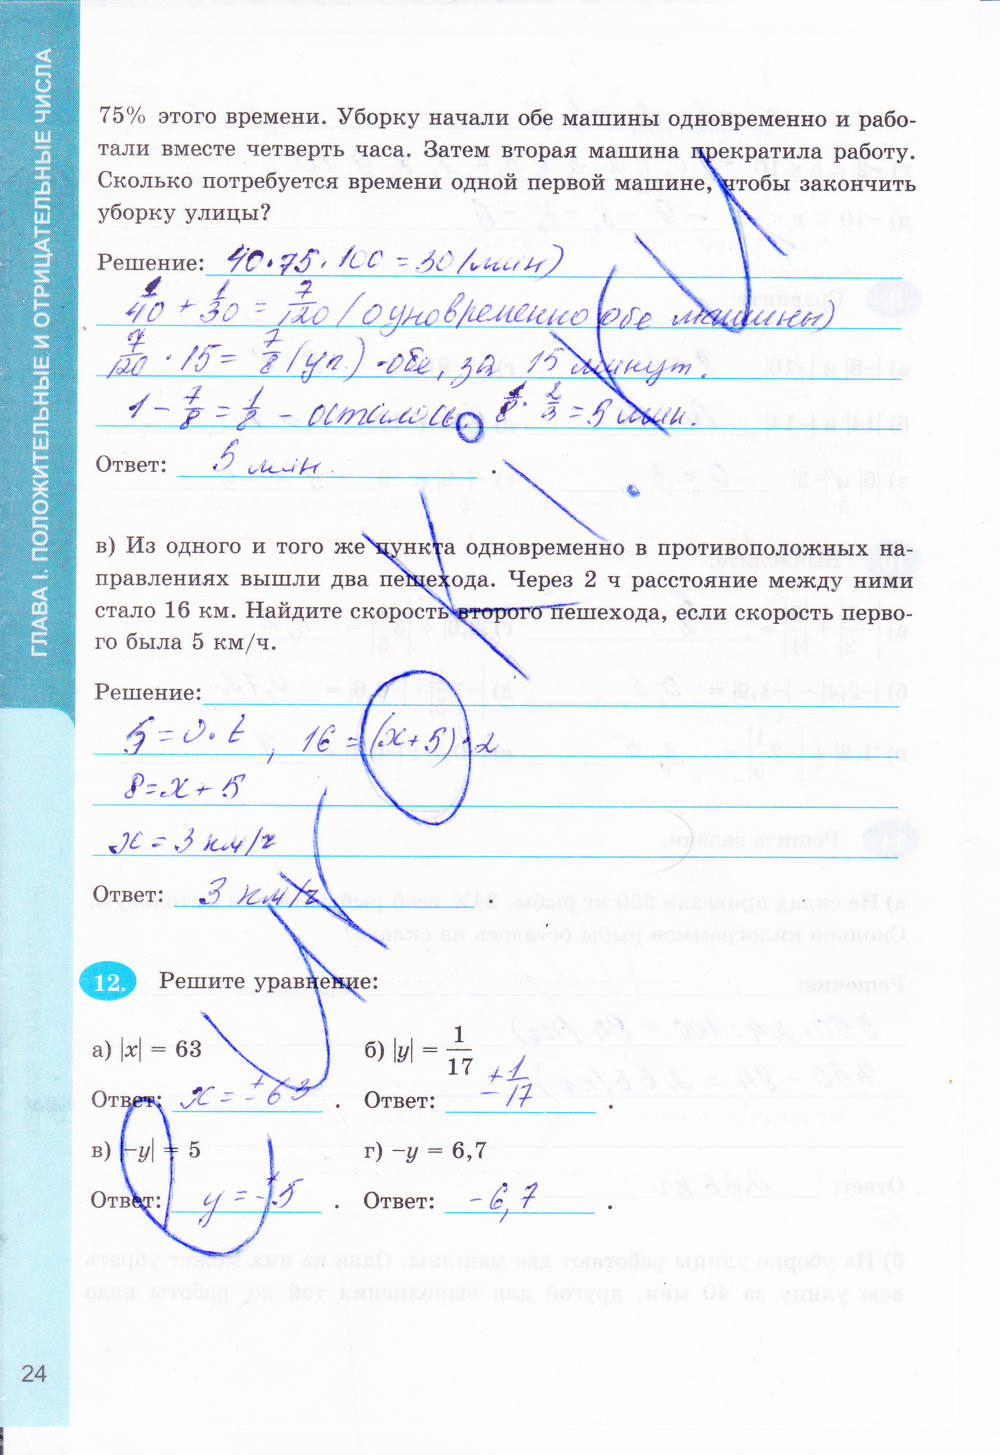 ГЛАВА I. ПОЛОЖИТЕЛЬНЫЕ И ОТРИЦАТЕЛЬНЫЕ ЧИСЛА
75% этого времени. Уборку начали обе машины одновременно и рабо-
тали вместе четверть часа. Затем вторая машина прекратила работу.
Сколько потребуется времени одной первой машине, чтобы закончить
уборку улицы?
Решение: 40·75·100 = 30 (мин)
1/40 + 1/30 = 7/120 (одновременно обе машины)
7/120 · 15 = 7/8 (ул.) - обе, за 15 минут.
1 - 7/8 = 1/8 - осталось. 1/8 · 2/3 = 5 мин.
Ответ: 5 мин .
в) Из одного и того же пункта одновременно в противоположных на-
правлениях вышли два пешехода. Через 2 ч расстояние между ними
стало 16 км. Найдите скорость второго пешехода, если скорость перво-
го была 5 км/ч.
Решение:
S = v · t , 16 = (x+5)·2
8 = x + 5
x = 3 км/ч
Ответ: 3 км/ч .
12. Решите уравнение:
а) |x| = 63 б) |y| = 1/17
Ответ: x = ±63 . Ответ: ±1/17 .
в) |−y| = 5 г) −y = 6,7
Ответ: y = ±5 . Ответ: -6,7 .
24